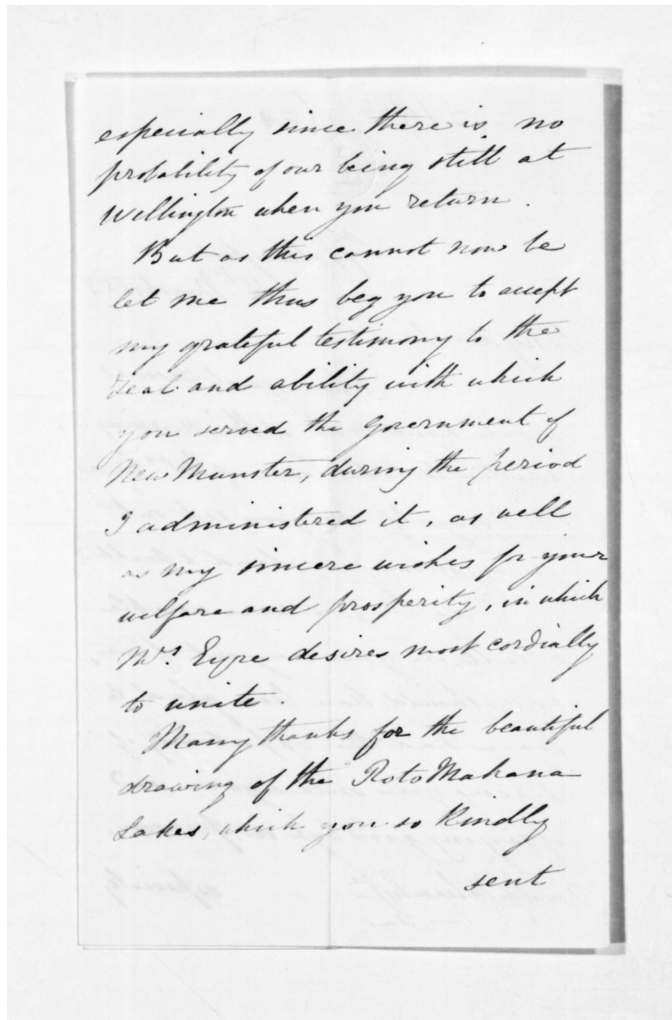 especially since there is no
probability of our being still at
Wellington when you return.
But as this cannot now be
let me thus beg you to accept
my grateful testimony to the
zeal and ability with which
you served the Government of
New Munster, during the period
I administered it, as well
as my sincere wishes for your
welfare and prosperity, in which
Mrs. Eyre desires most cordially
to unite.
Many thanks for the beautiful
drawing of the RotoMahana
Lakes, which you so kindly
sent